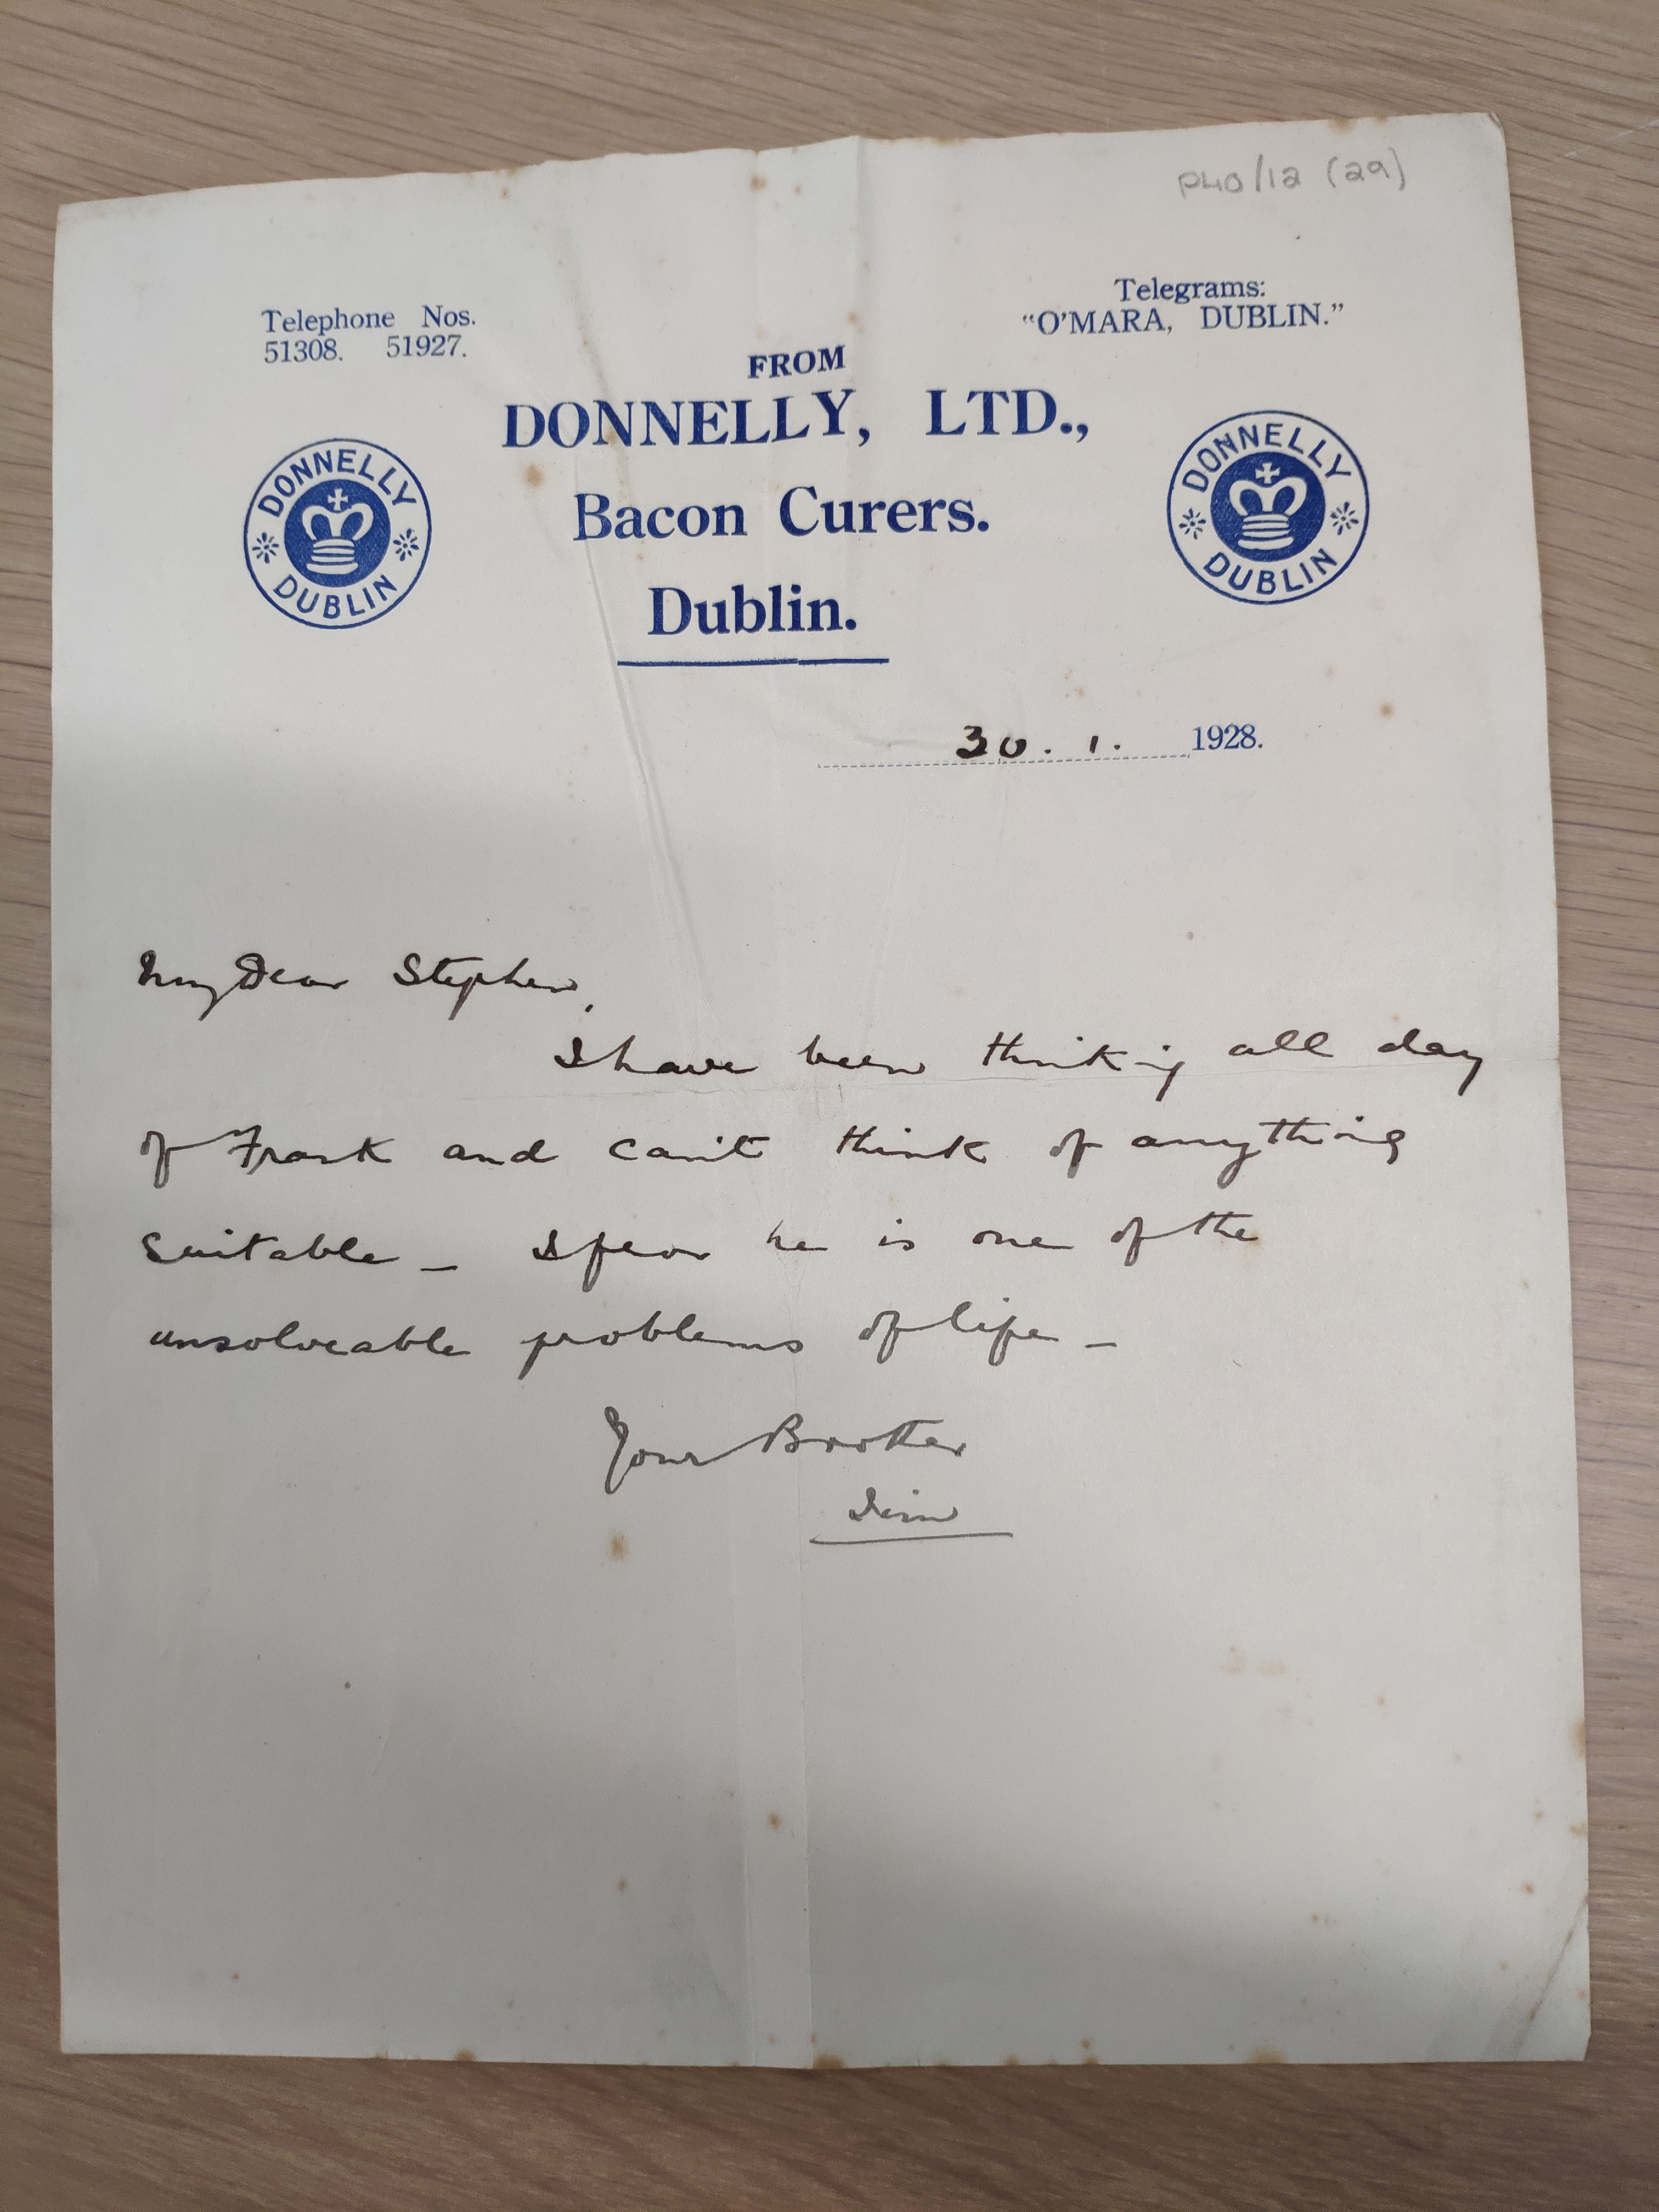 P40/12 (29)
Telephone Nos.
51308. 51927.
Telegrams:
"O'MARA, DUBLIN."
FROM
DONNELLY, LTD.,
DONNELLY
DUBLIN
DONNELLY
DUBLIN
Bacon Curers.
Dublin.
30. 1. 1928.
My Dear Stephen,
I have been thinking all day
of Frank and can't think of anything
suitable – I fear he is one of the
unsolveable problems of life –
Your Brother
Jim